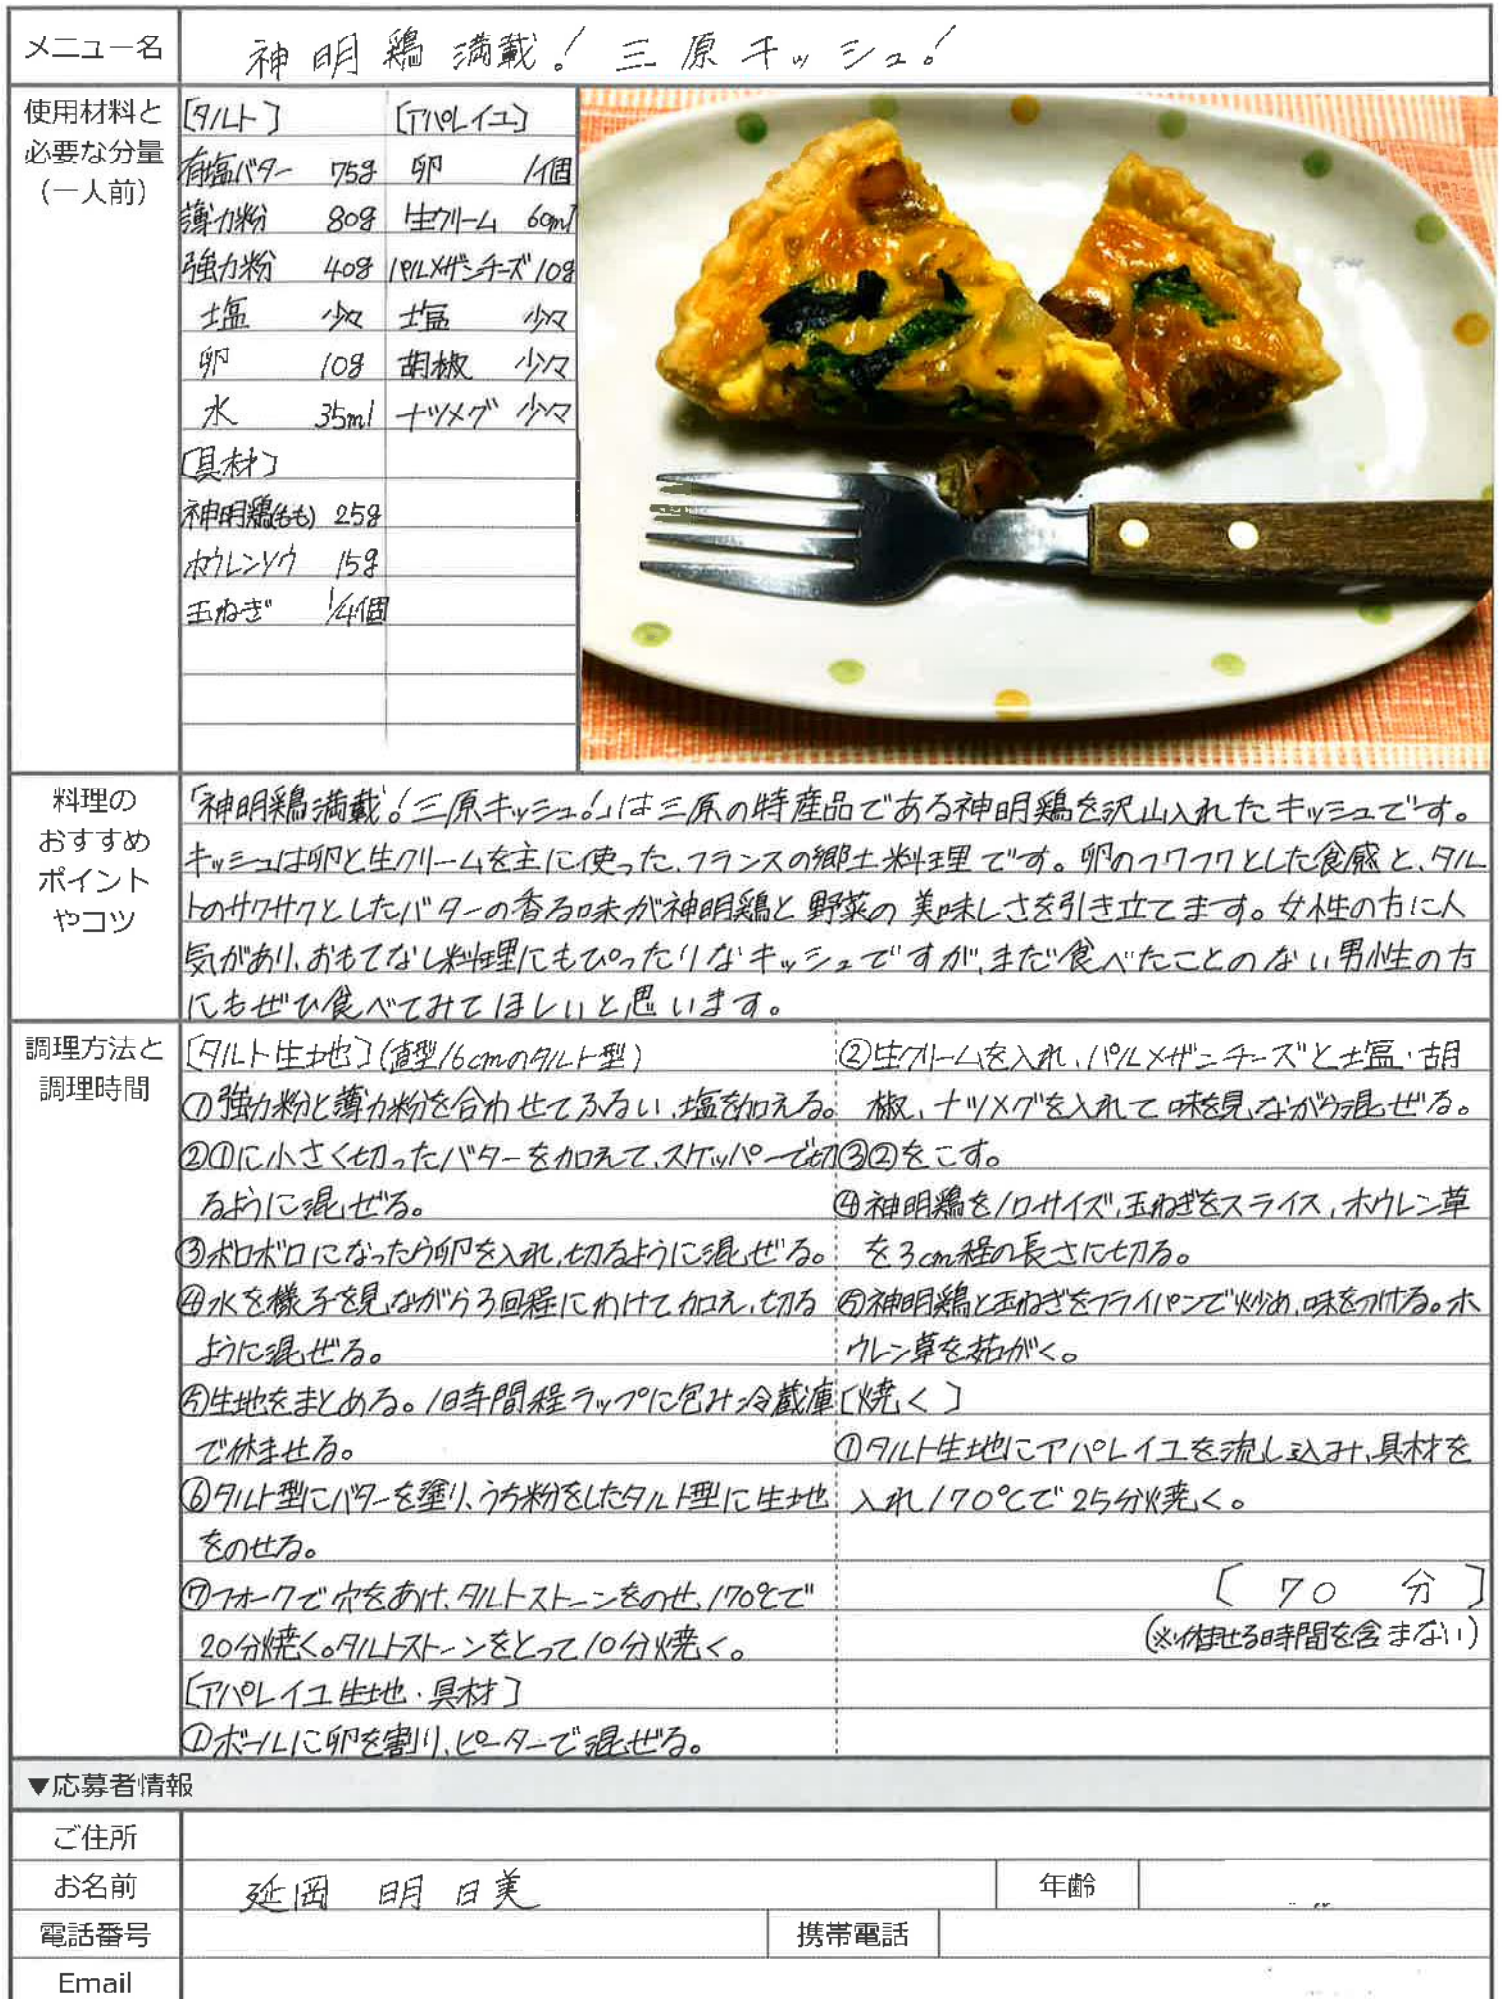 メニュー名
神明鶏満載！三原キッシュ！
使用材料と
必要な分量
（一人前）
[タルト]
有塩バター 75g
薄力粉 80g
強力粉 40g
塩 少々
卵 10g
水 35ml
[具材]
神明鶏(もも) 25g
ホウレンソウ 15g
玉ねぎ 1/4個
[アパレイユ]
卵 1個
生クリーム 60ml
パルメザンチーズ 10g
塩 少々
胡椒 少々
ナツメグ 少々
料理の
おすすめ
ポイント
やコツ
「神明鶏満載！三原キッシュ！」は三原の特産品である神明鶏を沢山入れたキッシュです。
キッシュは卵と生クリームを主に使った、フランスの郷土料理です。卵のフワフワとした食感と、タル
トのサクサクとしたバターの香る味が神明鶏と野菜の美味しさを引き立てます。女性の方に人
気があり、おもてなし料理にもぴったりなキッシュですが、まだ食べたことのない男性の方
にもぜひ食べてみてほしいと思います。
調理方法と
調理時間
[タルト生地](直型16cmのタルト型)
①強力粉と薄力粉を合わせてふるい、塩を加える。
②①に小さく切ったバターを加えて、スケッパーで切
るように混ぜる。
③ボロボロになったら卵を入れ、切るように混ぜる。
④水を様子を見ながら3回程にわけて加え、切る
ように混ぜる。
⑤生地をまとめる。1時間程ラップに包み冷蔵庫
で休ませる。
⑥タルト型にバターを塗り、うち粉をしたタルト型に生地
をのせる。
⑦フォークで穴をあけ、タルトストーンをのせ、170℃で
20分焼く。タルトストーンをとって10分焼く。
[アパレイユ生地・具材]
①ボールに卵を割り、ビーターで混ぜる。
②生クリームを入れ、パルメザンチーズと塩・胡
椒、ナツメグを入れて味を見ながら混ぜる。
③②をこす。
④神明鶏を1口サイズ、玉ねぎをスライス、ホウレン草
を3cm程の長さに切る。
⑤神明鶏と玉ねぎをフライパンで炒め、味をつける。ホ
ウレン草を茹がく。
[焼く]
①タルト生地にアパレイユを流し込み、具材を
入れ170℃で25分焼く。
[ 70 分 ]
(※休ませる時間を含まない)
▼応募者情報
ご住所
お名前
延岡 明日美
年齢
電話番号
携帯電話
Email